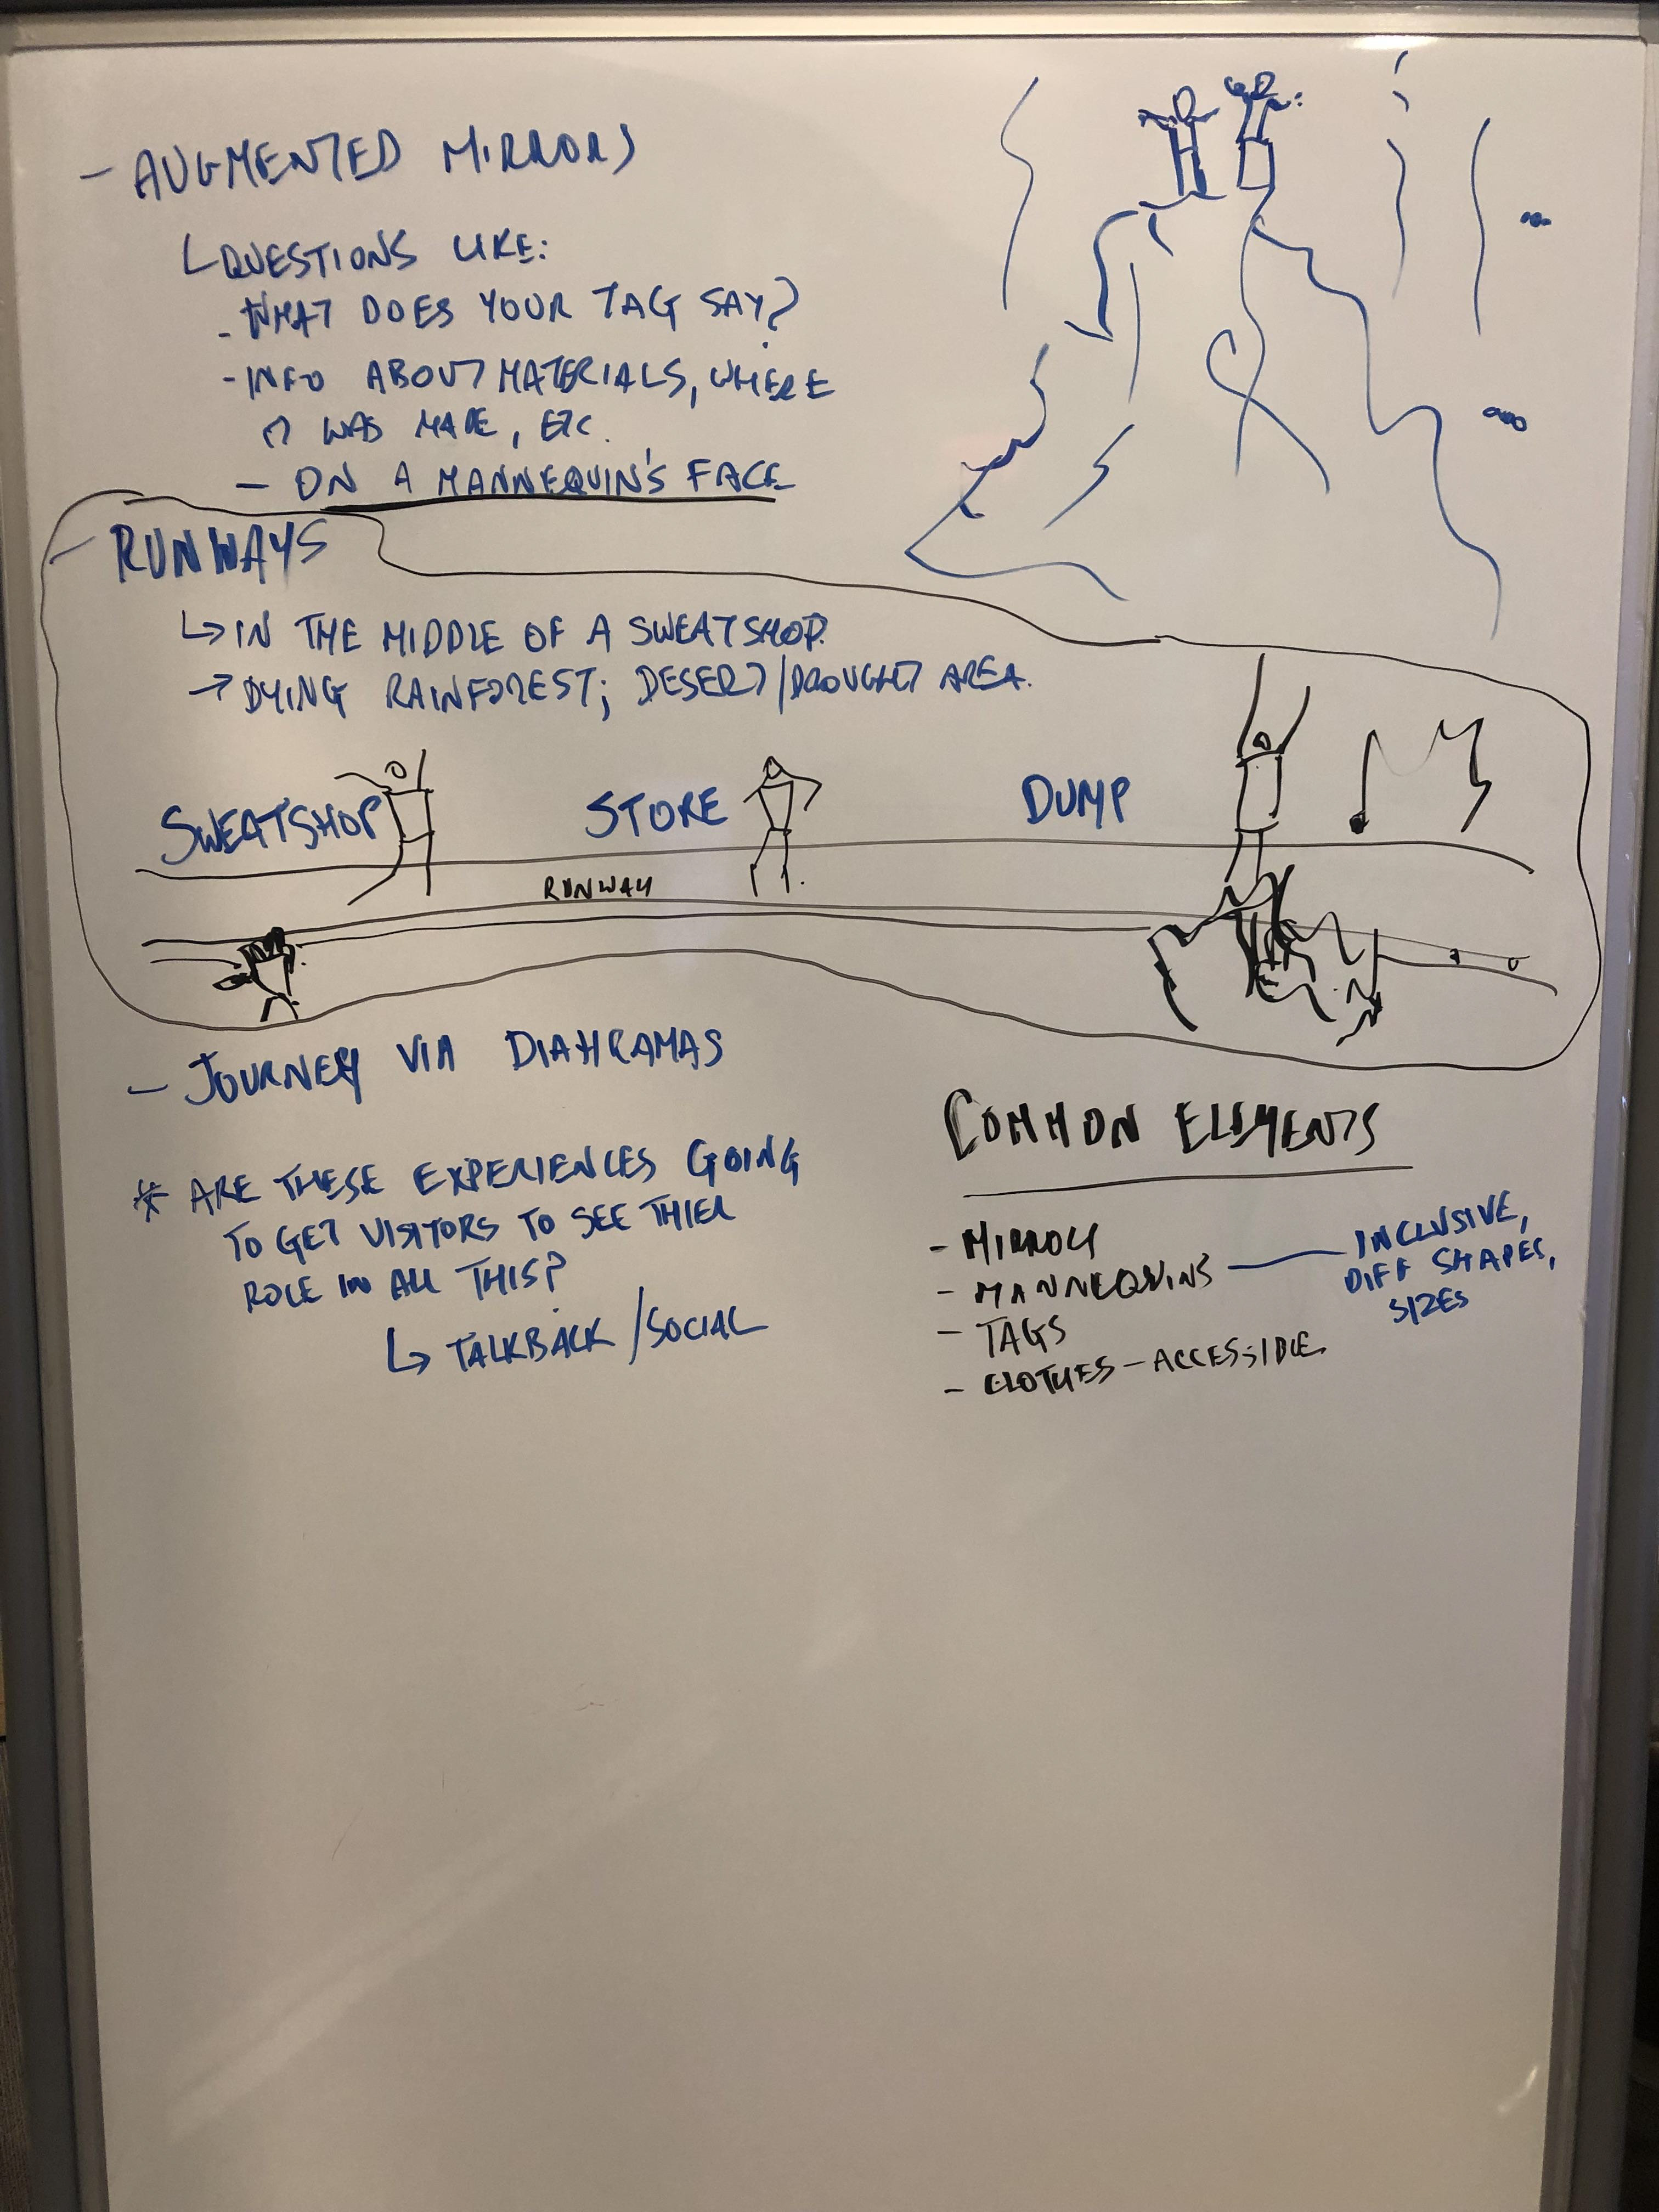 - AUGMENTED MIRRORS
QUESTIONS LIKE:
- WHAT DOES YOUR TAG SAY?
- INFO ABOUT MATERIALS, WHERE
IT WAS MADE, ETC.
- ON A MANNEQUIN'S FACE
- RUNWAYS
↳ IN THE MIDDLE OF A SWEATSHOP.
→ DYING RAINFOREST; DESERT/DROUGHT AREA.
SWEATSHOP STORE DUMP
RUNWAY
- JOURNEY VIA DIAHRAMAS
* ARE THESE EXPERIENCES GOING
TO GET VISITORS TO SEE THIER
ROLE IN ALL THIS?
↳ TALKBACK/SOCIAL
COMMON ELEMENTS
- MIRRORS
- MANNEQUINS — INCLUSIVE,
DIFF SHAPES,
SIZES
- TAGS
- CLOTHES - ACCESSIBLE.